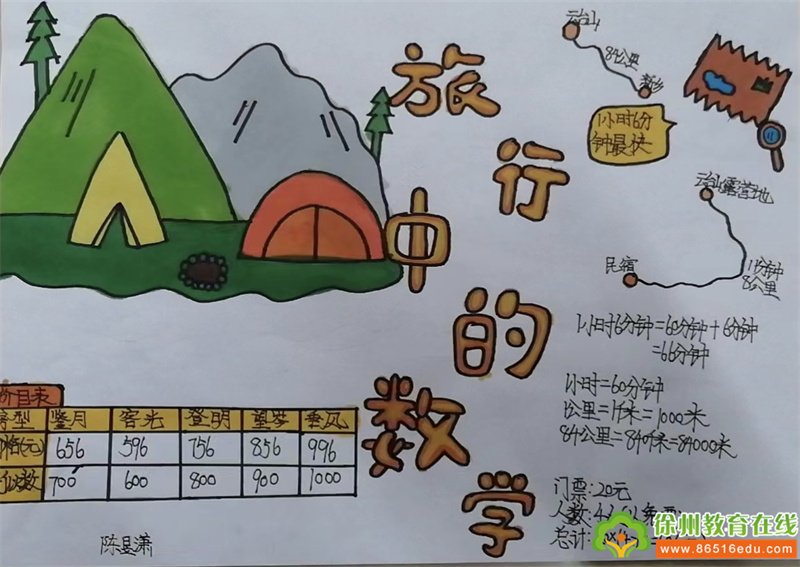 旅行中的数学
云台山
84公里
新乡
1小时6分
钟最快
云台山露营地
民宿
11分钟
8公里
1小时6分钟=60分钟+6分钟
=66分钟
1小时=60分钟
1公里=1千米=1000米
84公里=84千米=84000米
价目表
房型 鉴月 客光 登明 望岁 乘风
价格(元) 656 596 756 856 996
近似数 700 600 800 900 1000
门票:20元
人数:4人
总计:
陈昱潇
徐州教育在线
www.86516edu.com